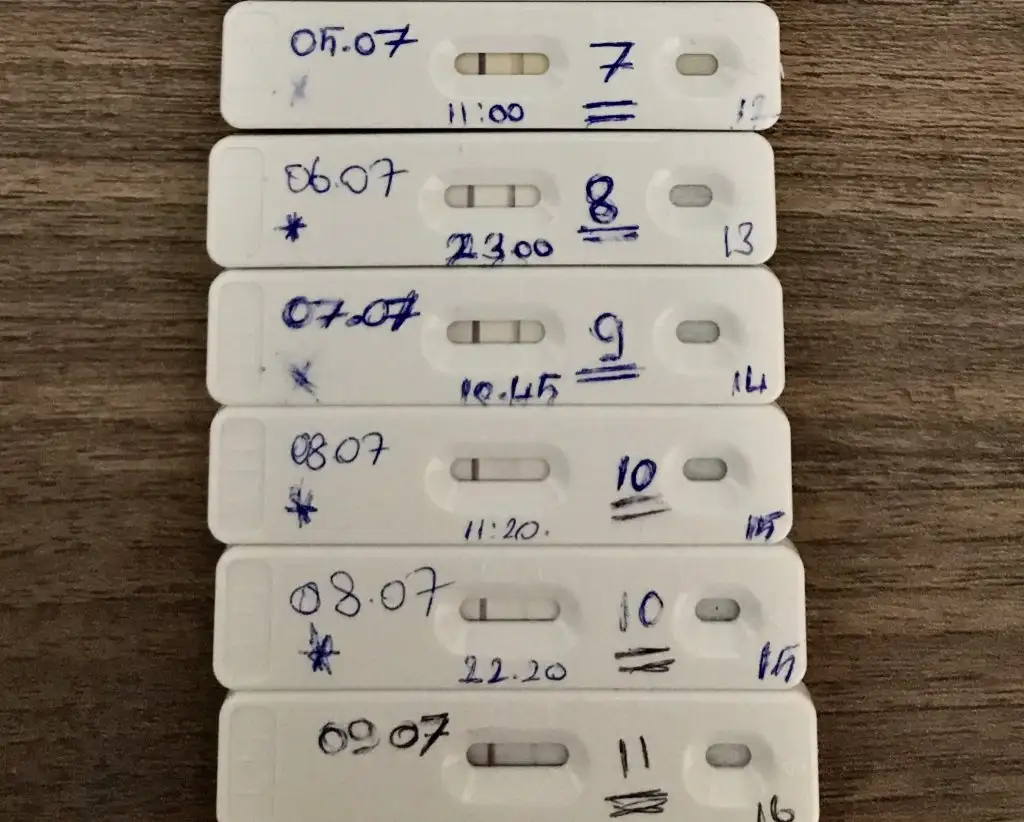 05.07
7
11:00
12
06.07
8
23.00
13
07.07
9
10.45
14
08 07
10
11:20.
15
08.07
10
22.20
15
09 07
11
16